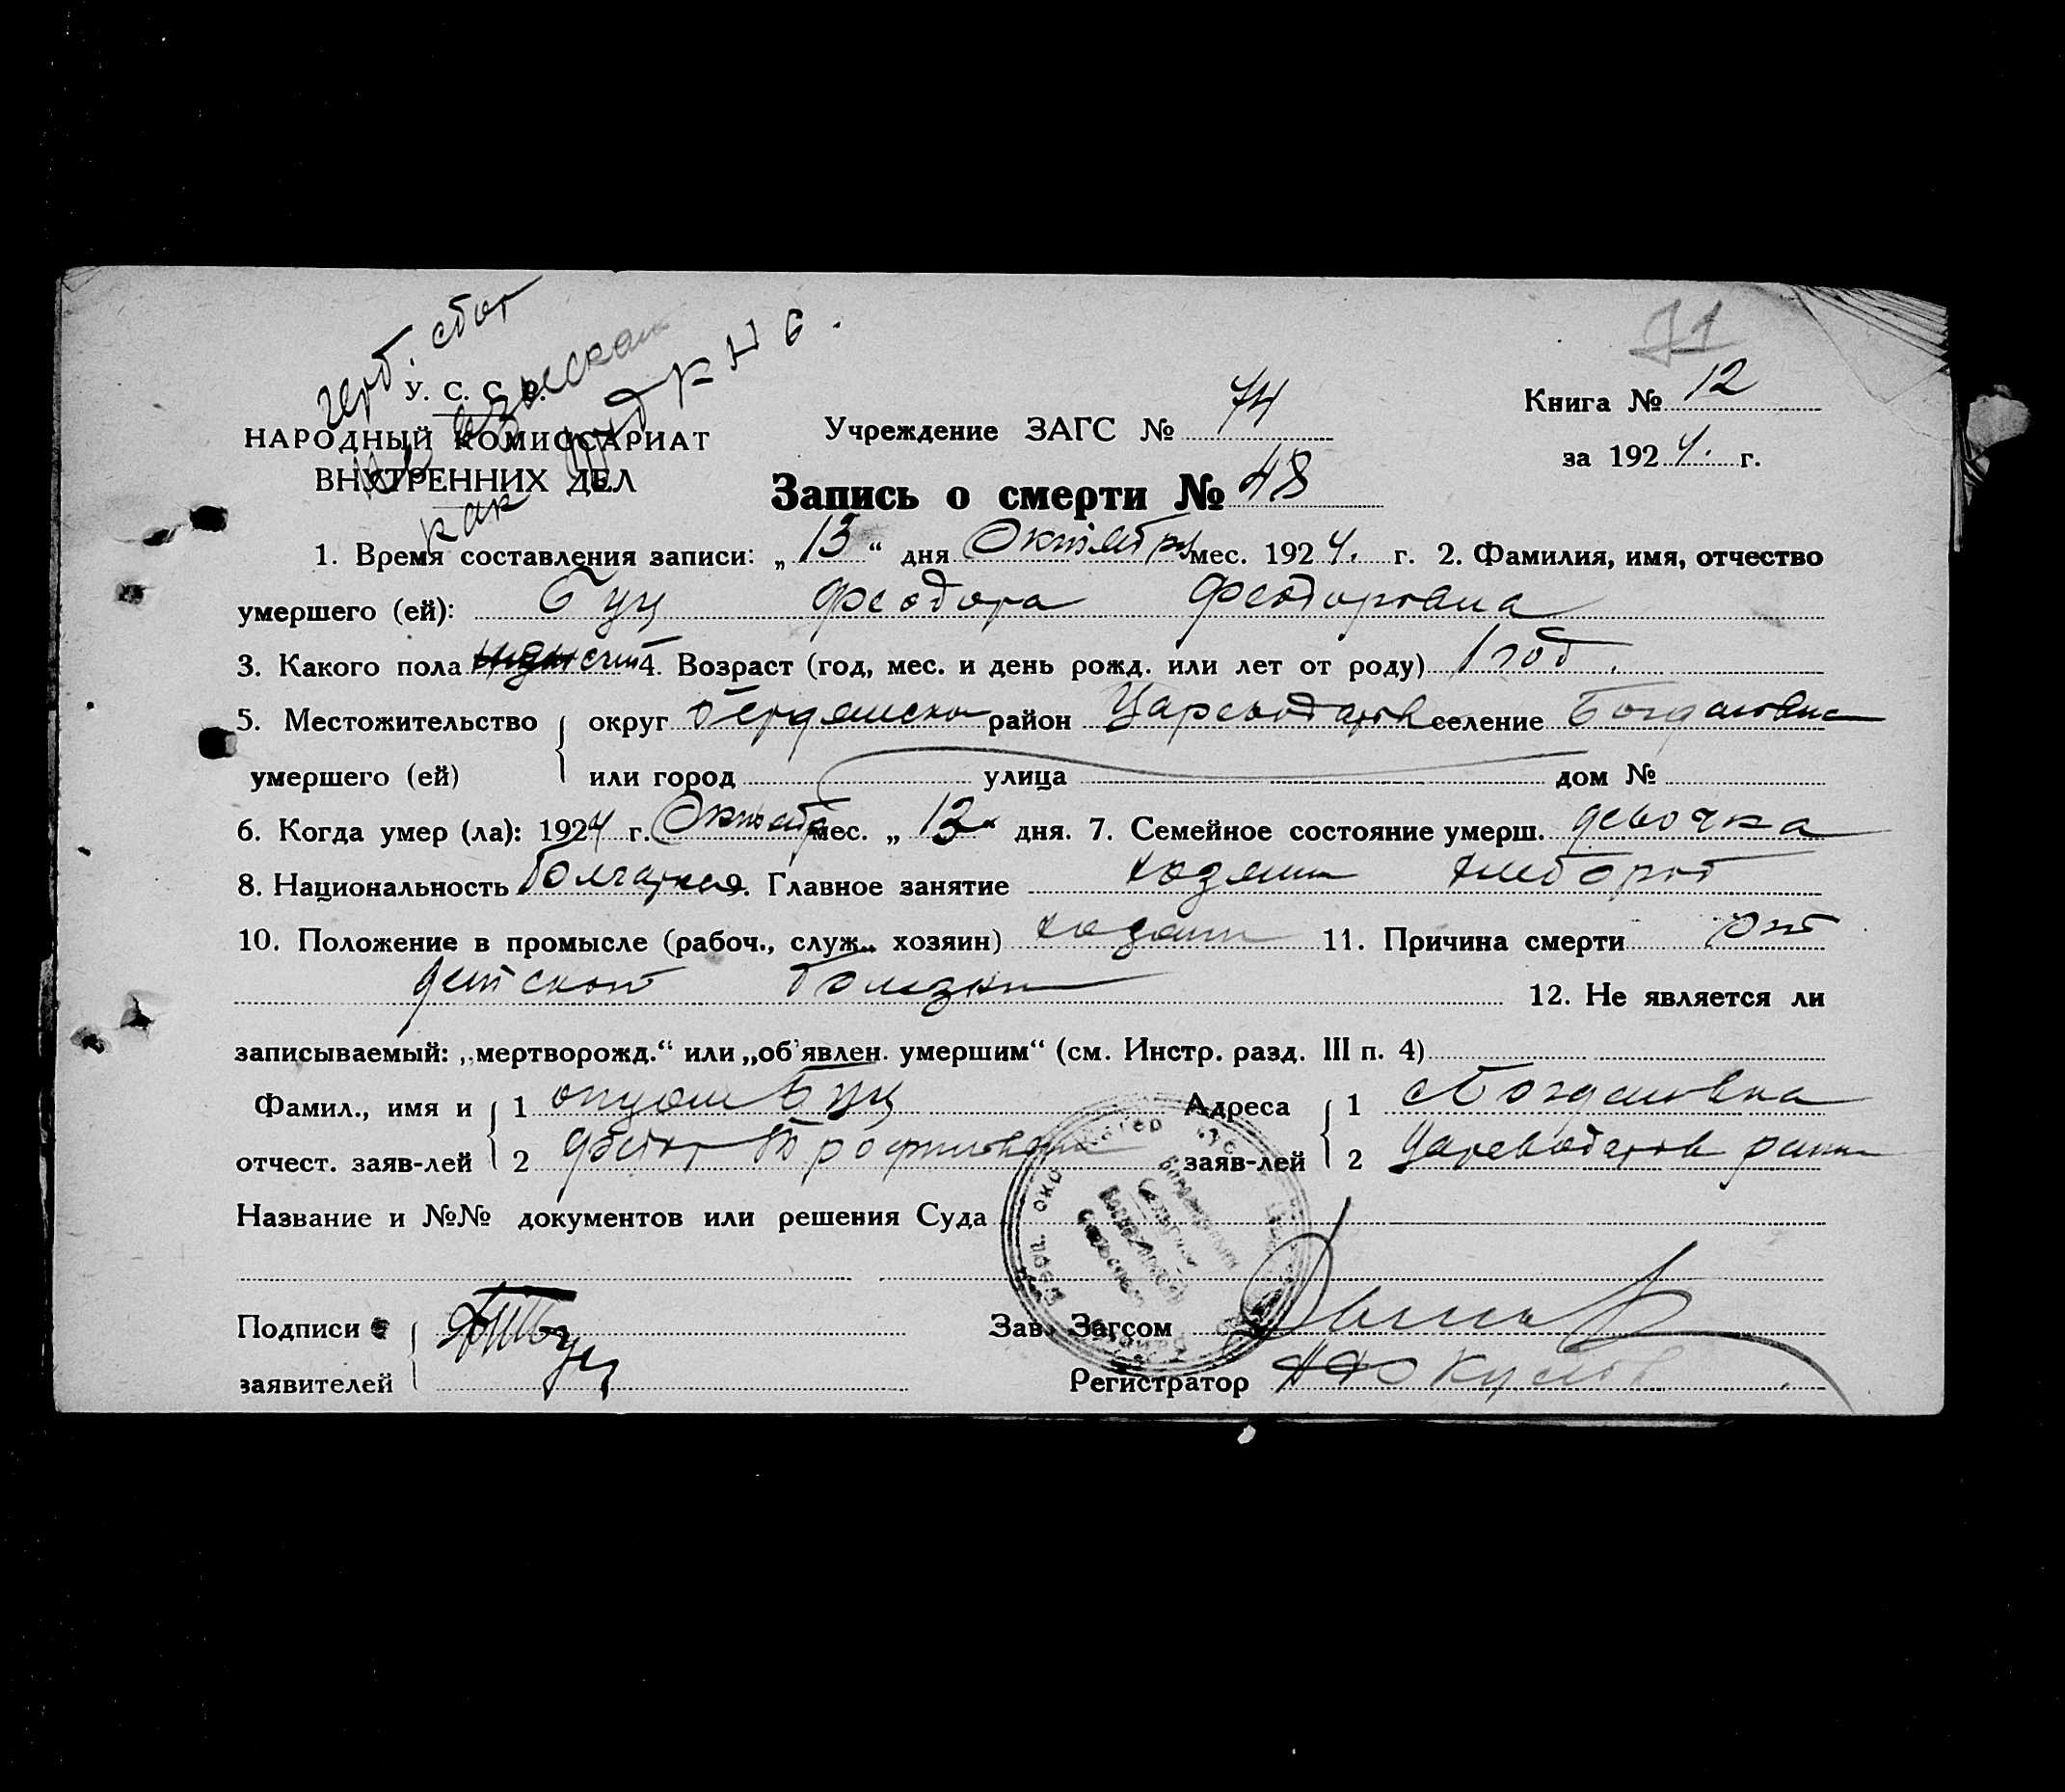 71
герб. сбор
не взыскан
как
У. С. С. Р.
НАРОДНЫЙ КОМИССАРИАТ
ВНУТРЕННИХ ДЕЛ
Учреждение ЗАГС № 74
Книга № 12
за 1924. г.
Запись о смерти № 48
1. Время составления записи: „13“ дня Октября мес. 1924. г. 2. Фамилия, имя, отчество
умершего (ей): Буц Феодора Феодоровна
3. Какого пола 4. Возраст (год, мес. и день рожд. или лет от роду) 1 год.
5. Местожительство округ Бердянский район Цареводаров селение Богдановка
умершего (ей) или город улица дом №
6. Когда умер (ла): 1924 г. Октября мес. „12“ дня. 7. Семейное состояние умерш. девочка
8. Национальность болгарка 9. Главное занятие хозяин хлебороб
10. Положение в промысле (рабоч., служ., хозяин) хозяин 11. Причина смерти от
детской болезни 12. Не является ли
записываемый: „мертворожд.“ или „об'явлен. умершим“ (см. Инстр. разд. III п. 4)
Фамил., имя и 1 Буц Адреса 1 с Богдановка
отчест. заяв-лей 2 Федор Трофимович заяв-лей 2 Цареводаров район
Название и №№ документов или решения Суда
Подписи Зав. Загсом
заявителей Буц Регистратор